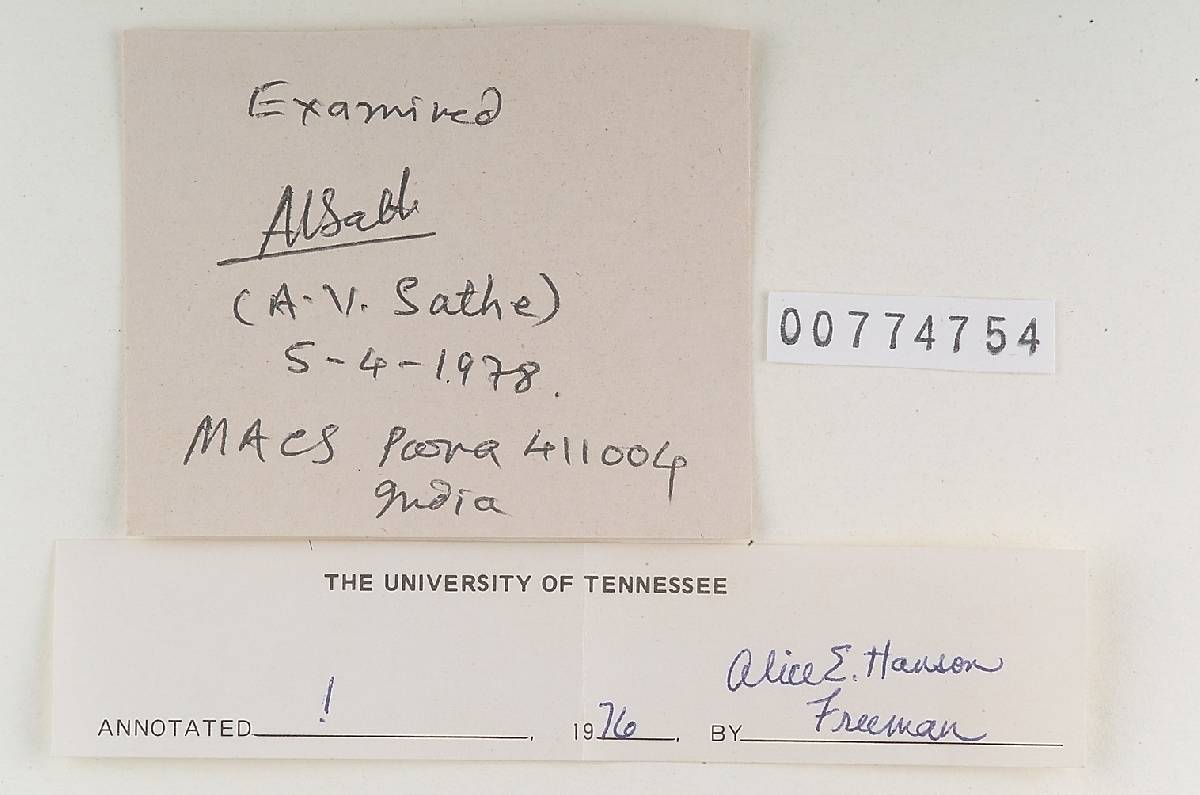 Examined
AVSathe
(A. V. Sathe)
5-4-1978.
MACS Poona 411004
India
00774754
THE UNIVERSITY OF TENNESSEE
ANNOTATED ! , 1976. BY Alice E. Hanson
Freeman